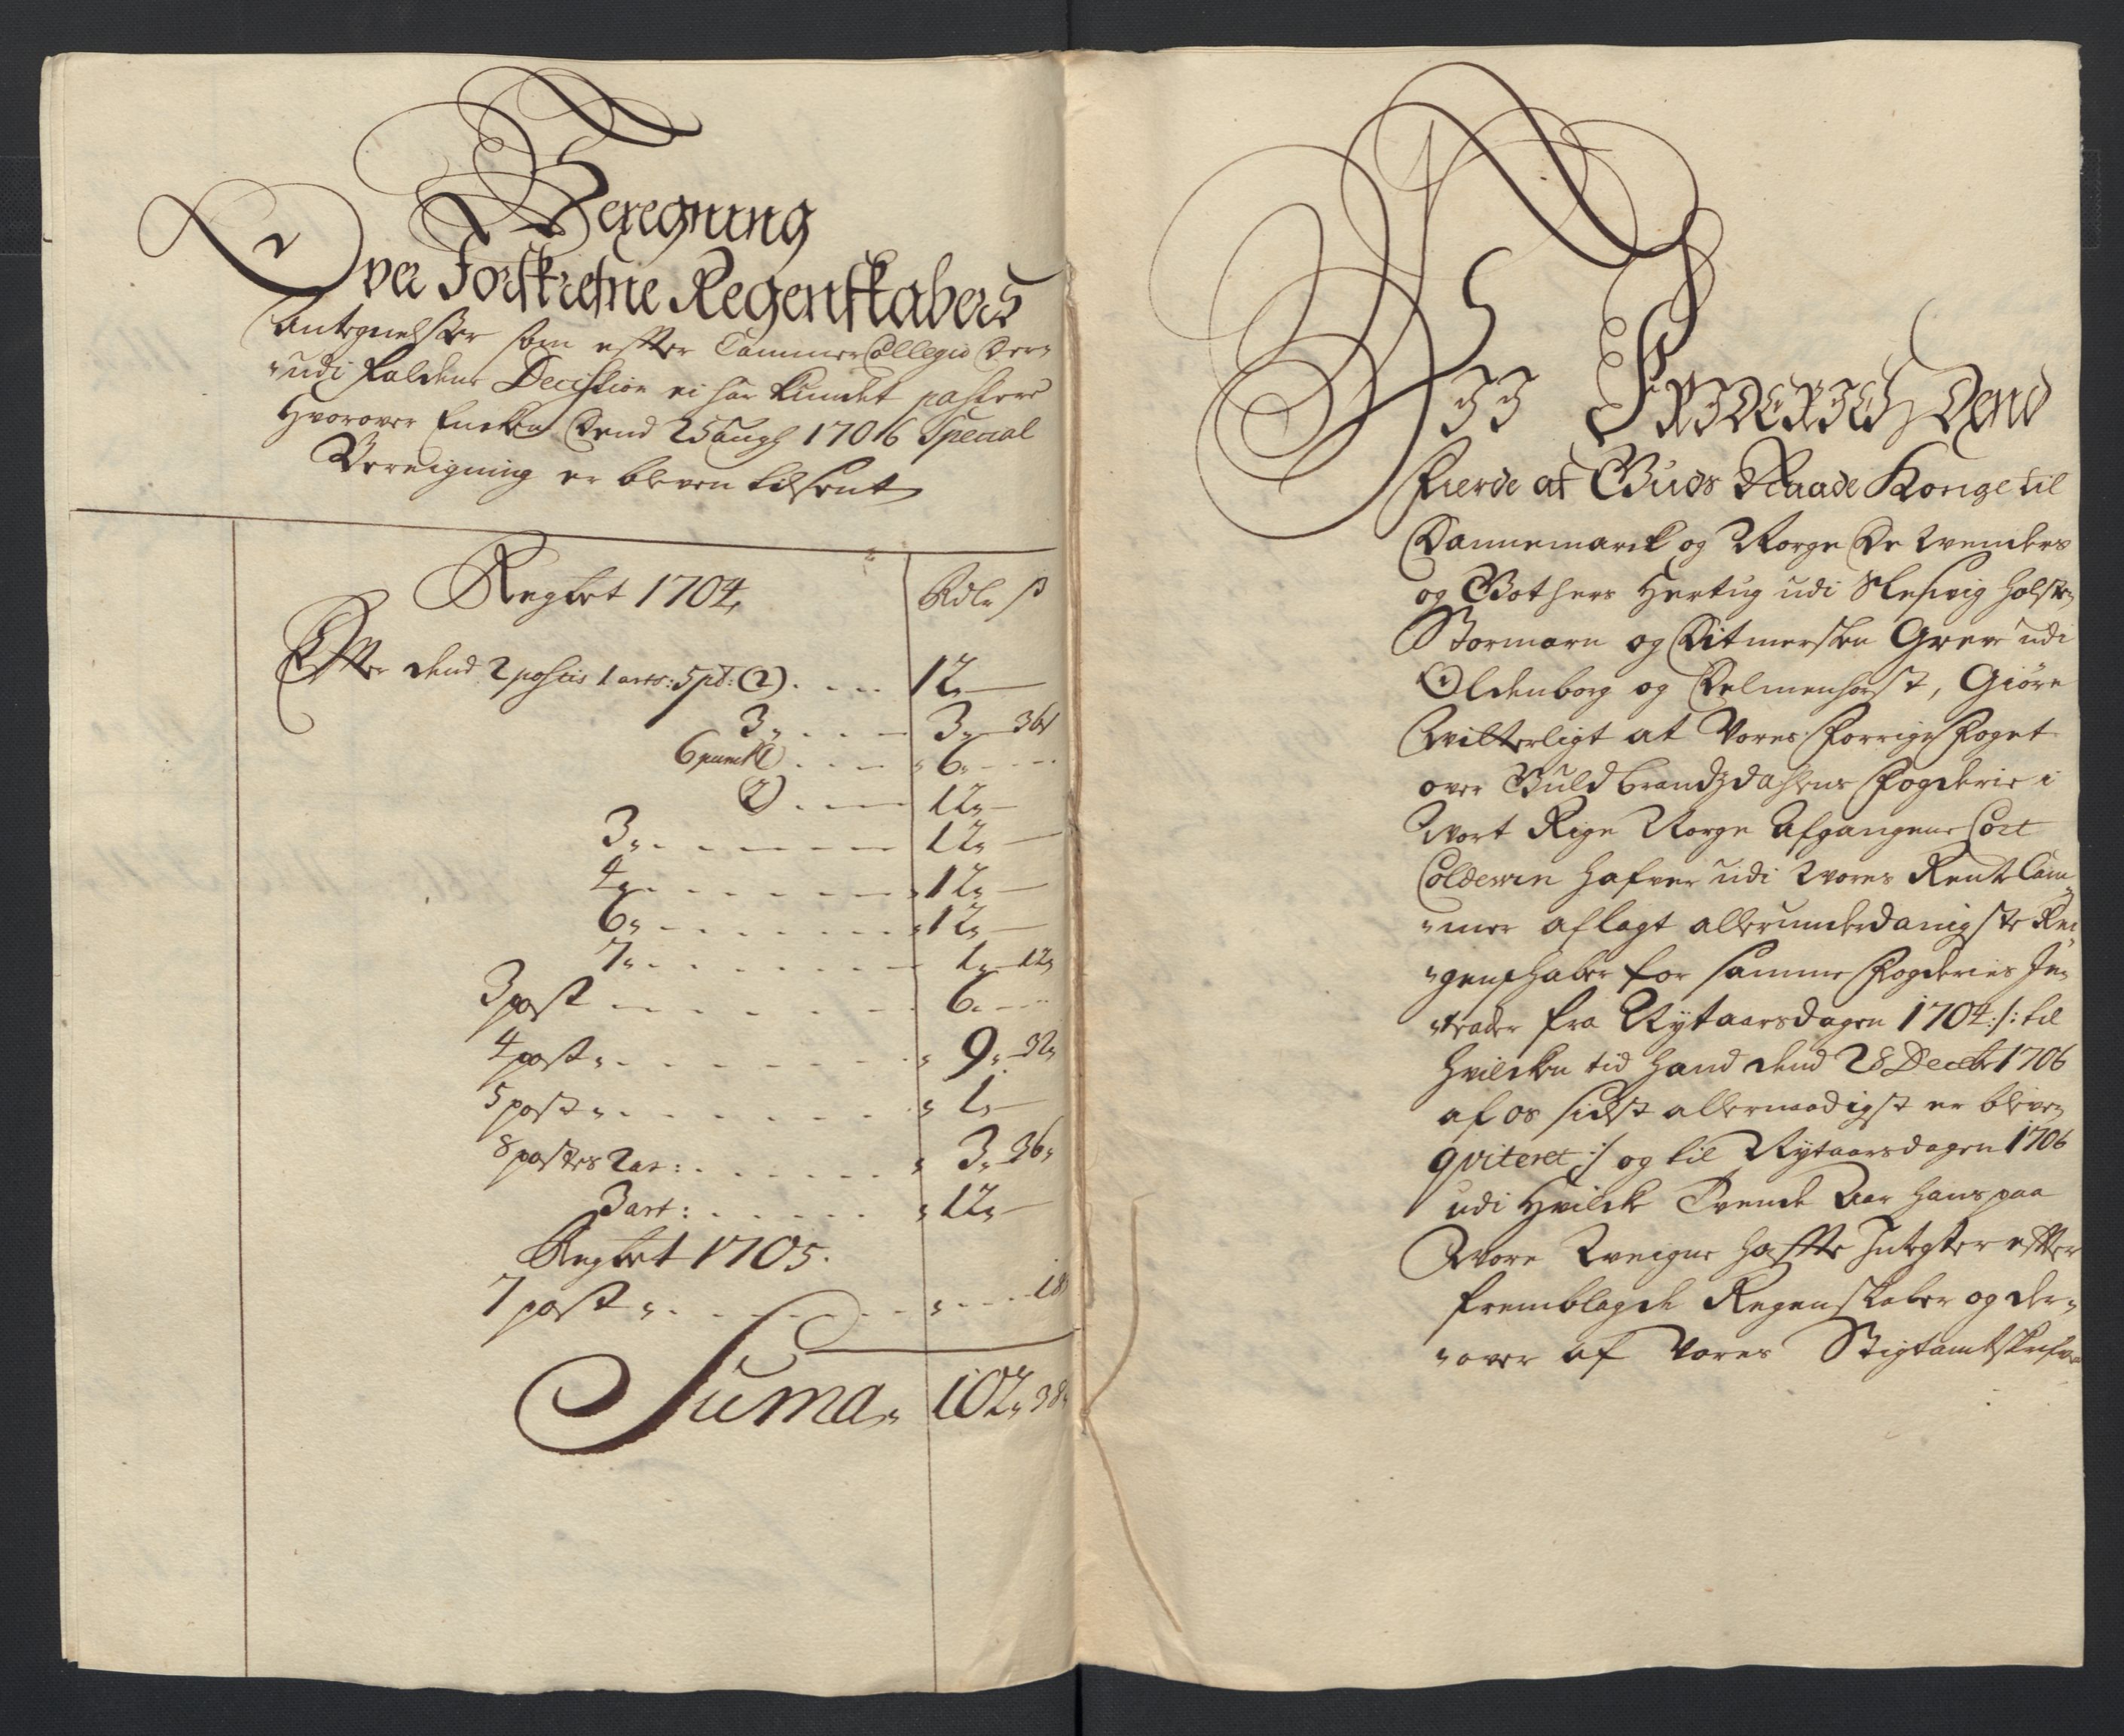 Beregning
Over Forskrefne Regenskabers
Antegnelser som effter CammerCollegio der„
„udi faldene Decission ei har kundet passere
Hvorover Encken dend 25 augs 1706 Special
Bereigning er bleven tilsent
Regbet 1704. Rdlr ß
Efter dend 2 postis 1 arts: 5 pt: (2) . . . . 12 —
3„ . . . — 3„ — 36
6 punct (1) . . . — „ 6„ - - -
(2) . . — 12„ —
3„ . — — — — — 12„ —
4„ . . . . . — „ 12„ —
6„ — . . . . . „ 12„ —
7„ . . . . . . — 1„ — 12„
3 post — . . . . . 6. - - -
4 post „ . — . . . . „ 9„ 32„
5 post „ . . . . . . „ 1„ —
8 postes 2 ar: . . . . . „ 3„ 36„
3 art: . . . . . „ 12„ —
Regbet 1705.
7 post „ . . . . . „ . . . 18
Suma„ 102„ 38„
Wii FRIDERICH Dend
Fierde af Guds Naade Konge til
Dannemarck og Norge De Wenders
og Gothers Hertug udi Slesvig Holsten
Stormarn og Ditmersken Greve udi
Oldenborg og Delmenhorst, Giøre
Witterligt at Vores Forrige Foget
over Guldbrandsdahlens Fogderie i
Wort Rige Norge Afgangene Cort
Coldevin hafver udi Wores Rent Cam„
„mer aflagt allerunderdanigste Re„
„genschaber for samme Fogderies In„
„trader fra Nytaarsdagen 1704 :/: til
hvilcken tid hand dend 28 Decebr 1706
af os sidst allernaadigst er bleven
qviteret :/ og til Nytaarsdagen 1706
udi Hvilcke Tvende Aar hans paa
Wore Weigne hafte Integter effter
fremblagde Regenskaber og der„
„over af Vores Stigtamtskrifver